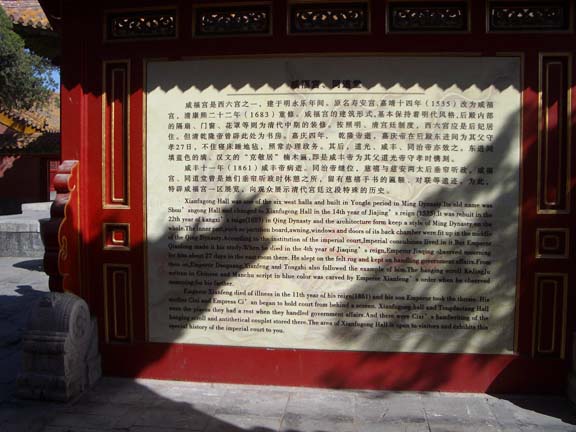 咸福宫、同道堂
咸福宫是西六宫之一,建于明永乐年间,原名寿安宫,嘉靖十四年(1535)改为咸福
宫,清康熙二十二年(1683)重修。咸福宫的建筑形式,基本保持着明代风格,后殿内部
的隔扇、门窗、花罩等则为清代中期的装修。按照明、清宫廷制度,西六宫应是后妃居
住。但清乾隆帝曾辟此处为书房。嘉庆四年, 乾隆帝逝,嘉庆帝在后殿东进间为其父守
孝27日,不住寝床铺地毡,照常办理政务。其后,道光、咸丰、同治帝亦效之。东进间
填蓝色的满、汉文的“克敬居”楠木匾,即是咸丰帝为其父道光帝守孝时镌刻。
咸丰十一年(1861)咸丰帝病逝。同治帝继位,慈禧与慈安两太后垂帘听政。咸福
宫、同道堂曾是她们垂帘听政时休憩之所,留有慈禧手书的匾额、对联等遗迹。为此,
特辟咸福宫一区展览,向观众展示清代宫廷这段特殊的历史。
Xianfugong Hall was one of the six west halls and built in Yongle period in Ming Dynasty.Its old name was
Shou' angong Hall and changed to Xianfugong Hall in the 14th year of Jiajing' s reign (1535).It was rebuit in the
22th year of kangxi' s reign(1683) in Qing Dynasty and the architecture form keep a style of Ming Dynasty on the
whole.The inner part,such as partition board,awning,windows and doors of its back chamber were fit up in the middle
of the Qing Dynasty.According to the institution of the imperial court,Imperial concubines lived in it But Emperor
Qianlong made it his study.When he died in the 4th year of Jiaqing' s reign,Emperor Jiaqing observed mourning
for him about 27 days in the east room there. He slept on the felt rug and kept on handling government affairs.From
then on,Emperor Daoguang,Xianfeng and Tongzhi also followed the example of him.The hanging scroll Kejingju
written in Chinese and Manchu script in blue color was carved by Emperor Xianfeng' s order when he observed
mourning for his farther.
Emperor Xianfeng died of illness in the 11th year of his reign(1861) and his son Emperor took the throne. His
mother Cixi and Empress Ci' an began to hold court from behind a screen. Xianfugong hall and Tongdaotang Hall
were the places they had a rest when they handled government affairs.And there were Cixi' s handwriting of the
hanging scroll and antithetical couplet stored there.The area of Xianfugong Hall is open to visitors and exhibits this
special history of the imperial court to you.